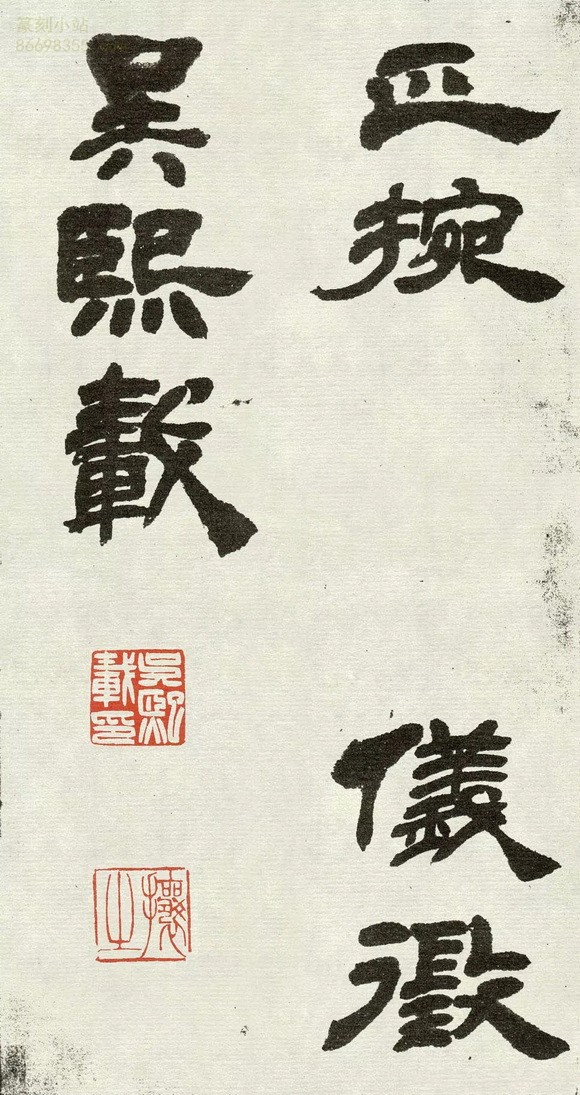 篆刻小站
正捥
儀徵
吳熙載
吳熙載印
攘之